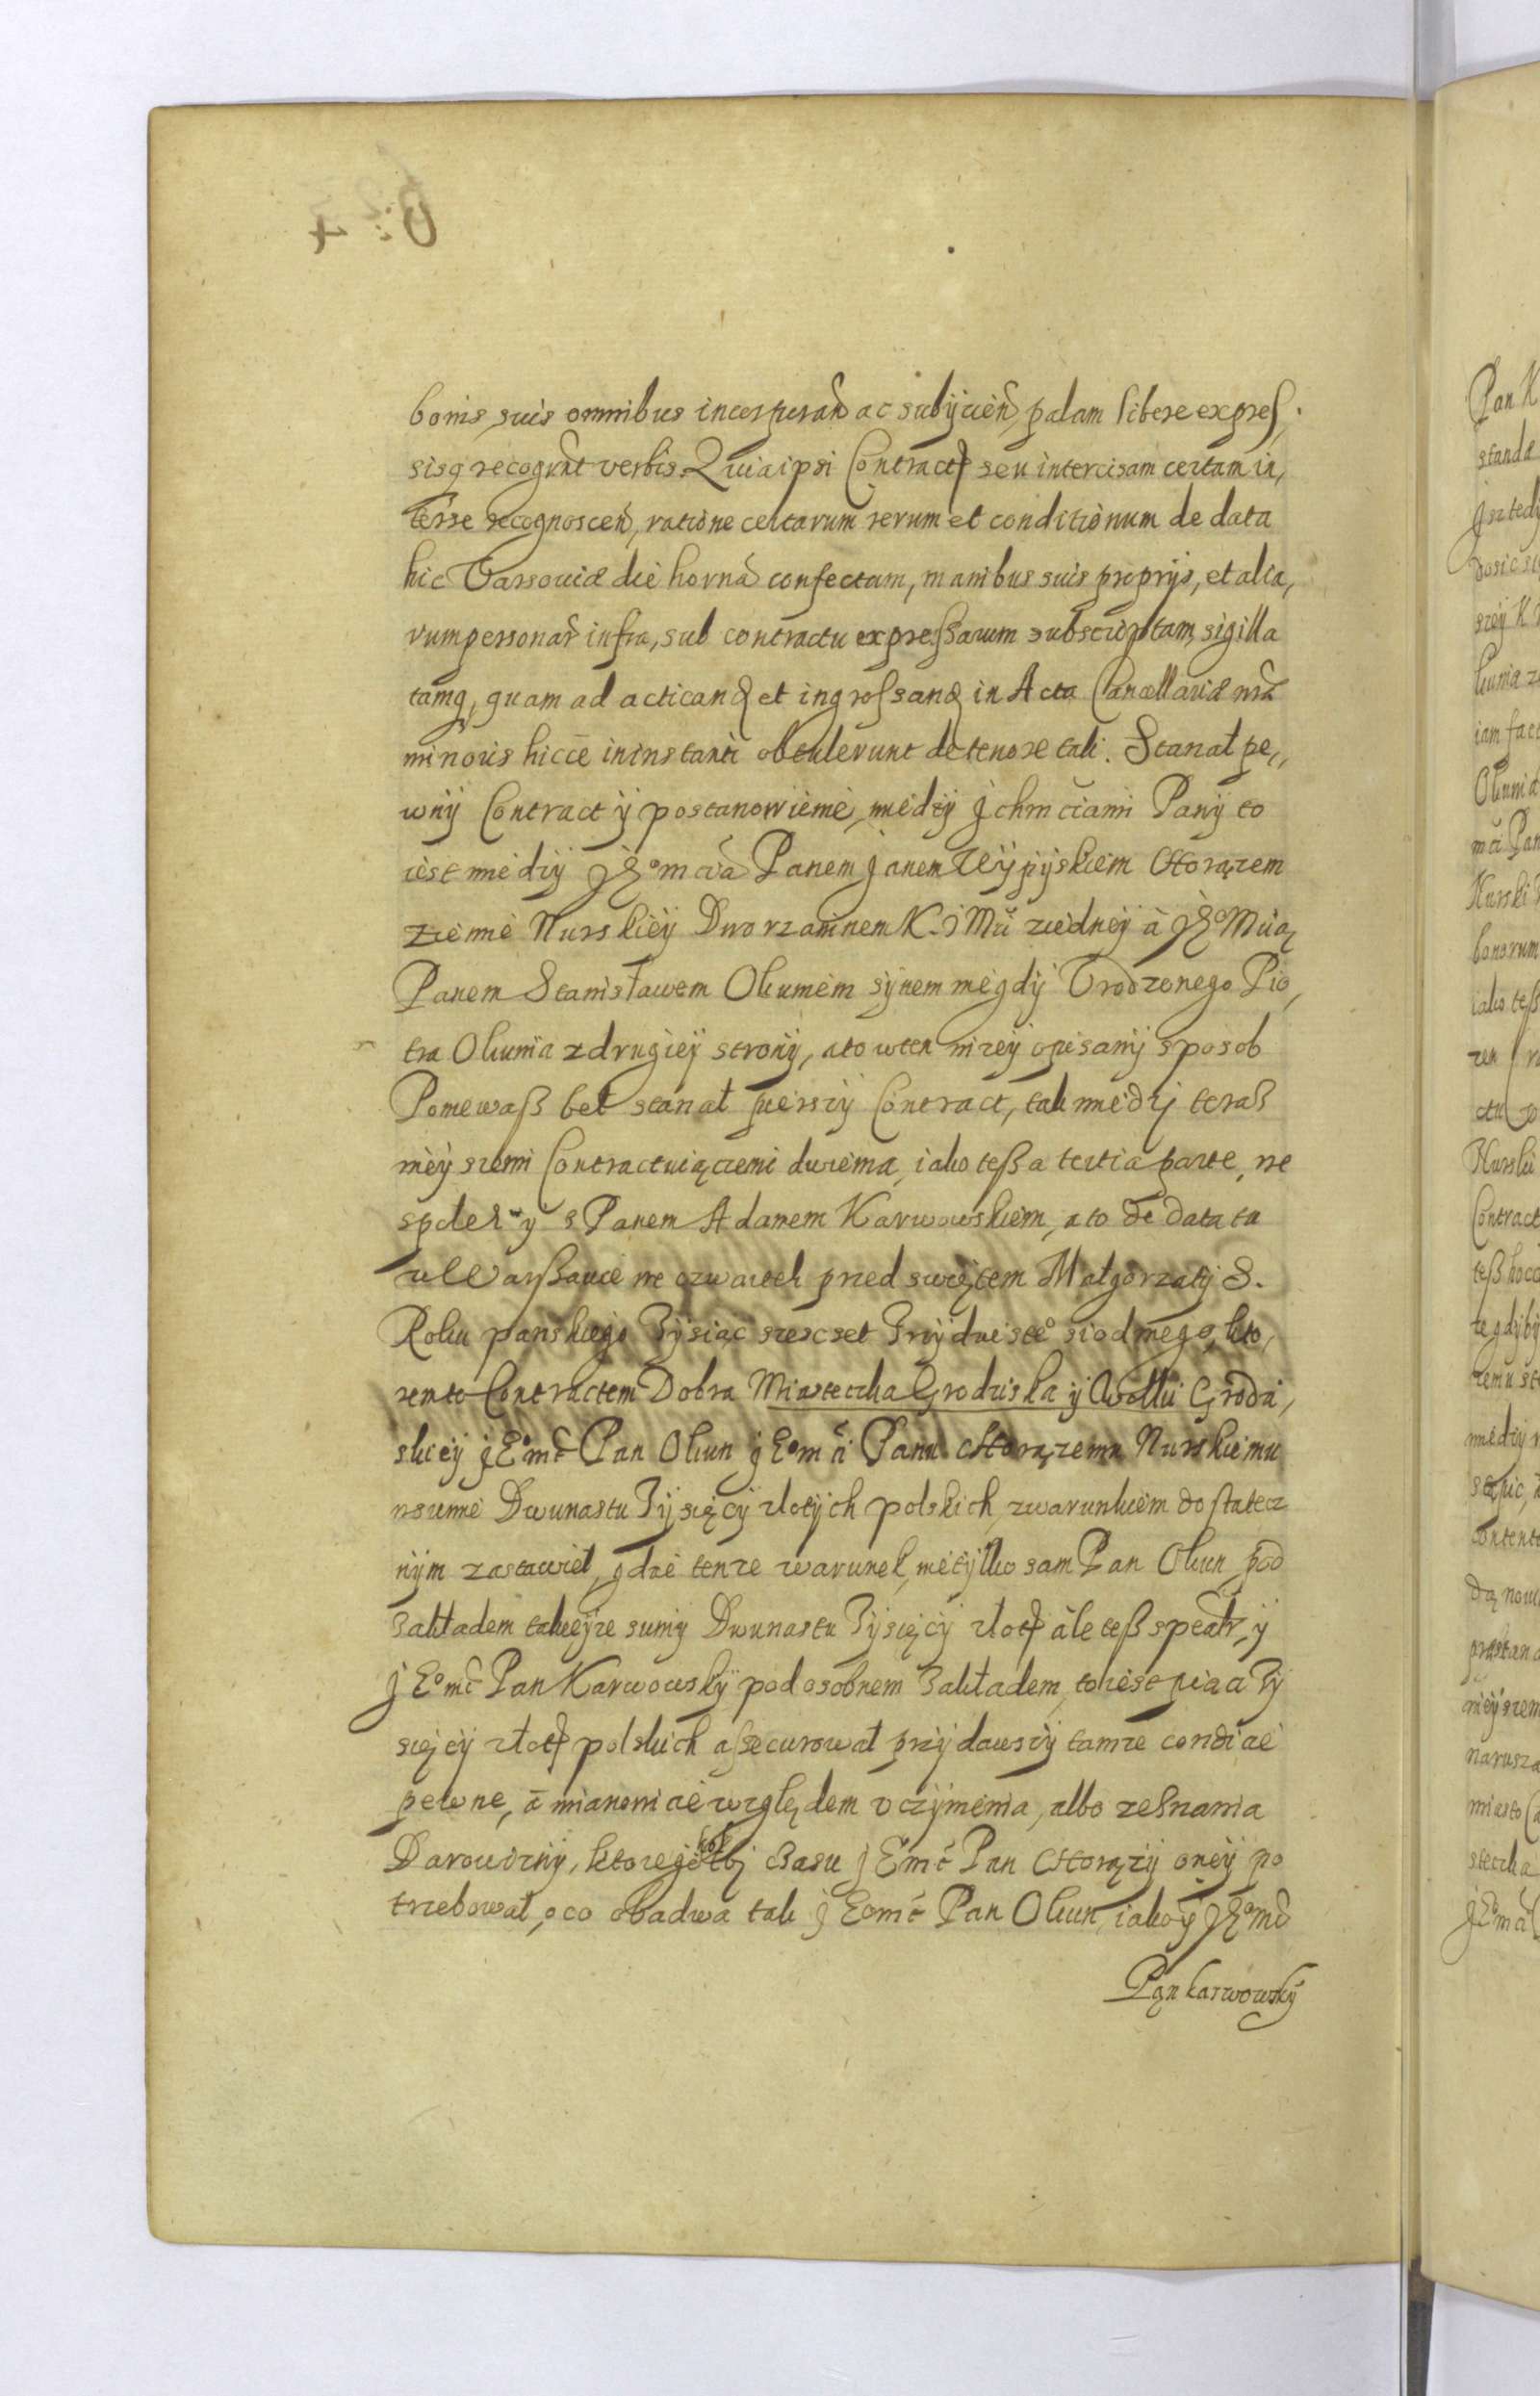 bonis suis omnibus incorporan̄ ac subijcien̄ palam libere expres,
sisq recogn̄t verbis. Quia ipsi Contract seu intercisam certam in,
terse recognoscen̄, ratione certarum rerum et conditionum de data
hic Varsouiæ die horna confectam, manibus suis proprijs, et alia,
rum personar̄ infra, sub contractu expressarum subscriptam, sigilla
tamq, quam ad acticand et ingrossand in Acta Cancellariæ nr̄a
minoris hicce in instanti obtulerunt de tenore tali. Stanał pe,
wnÿ Contract ÿ postanowienie, miedzÿ jchmciami Panÿ to
iest miedzÿ JE°mcia Panem Janem Ręÿpÿskiem Chorązem
ziemie Nurskieÿ Dworzaninem K. J Mci ziedneÿ à JE°Mcią
Panem Stanisławem Okuniem sÿnem niegdÿ Vrodzonego Pio,
tra Okunia z drugieÿ stronÿ, a to w ten nizeÿ opisanÿ sposob
Poniewaß beł stanał pierszÿ Contract, tak miedzÿ teraß
nieÿszemi Contractuiączemi dwiema, iako teß a tertia parte, ne
społe y s Panem Adamem Karwowskiem, a to de data ta
w Warßawie we czwartek przed swiętem Małgorzatÿ S.
Roku panskiego Tÿsiąc szescset Trzÿdzieste° siodmego, kto,
remto Contractem Dobra Miasteczka Grodziska ÿ Wolki Grodzi,
skieÿ jE°mć Pan Okun jE°m ći Panu Chorązemu Nurskiemu
wsumie Dwunastu Tÿsięcÿ złotÿch polskich, zwarunkiem dostatecz
nÿm zastawieł, gdzie tenze warunek, nietÿlko sam Pan Okun pod
Zakładem takieÿze sumÿ Dwunastu Tÿsięcÿ złot ale teß ÿ
jE°mć Pan Karwowskÿ pod osobnem Zakładem, to iest pięcia Tÿ
sięcÿ złot polskich assecurował przÿdawszÿ tamze condiae
pewne, a mianowicie względem vczÿnienia, albo zeßnania
Darowiznÿ, ktoregokolbÿ Czasu jEmć Pan Chorązÿ oneÿ po
trzebował, o co obadwa tak jEomć Pan Okun, iako ÿ JE°mć
Pan karwowskÿ